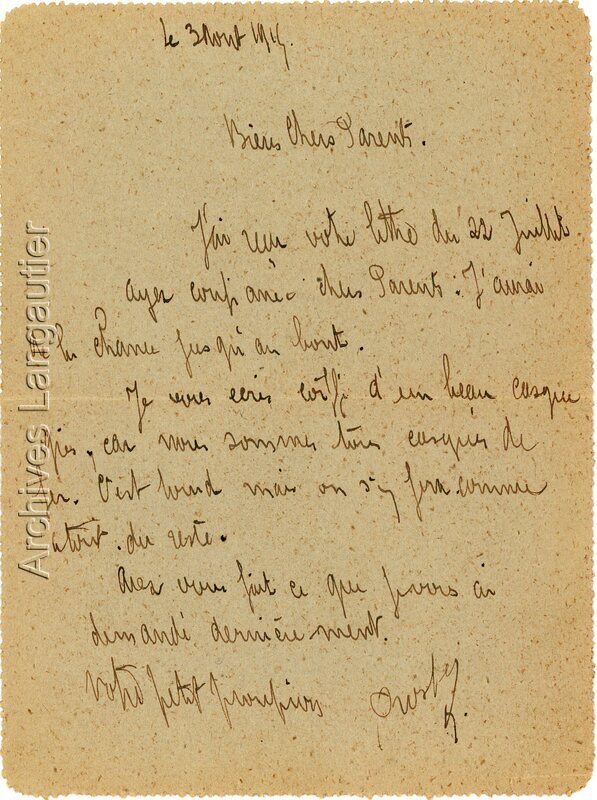 le 3 Aout 1915.
Biens Chers Parents.
J'ai reçu votre lettre du 22 Juillet
ayez confiance chers Parents. J'aurai
la chance jusqu'au bout.
Je vous écris coiffé d'un beau casque
gris, car nous sommes tous casqués de
C'est lourd mais on s'y fera comme
du reste.
Avez vous fait ce que je vous ai
demandé dernièrement.
Votre petit
Archives Langautier